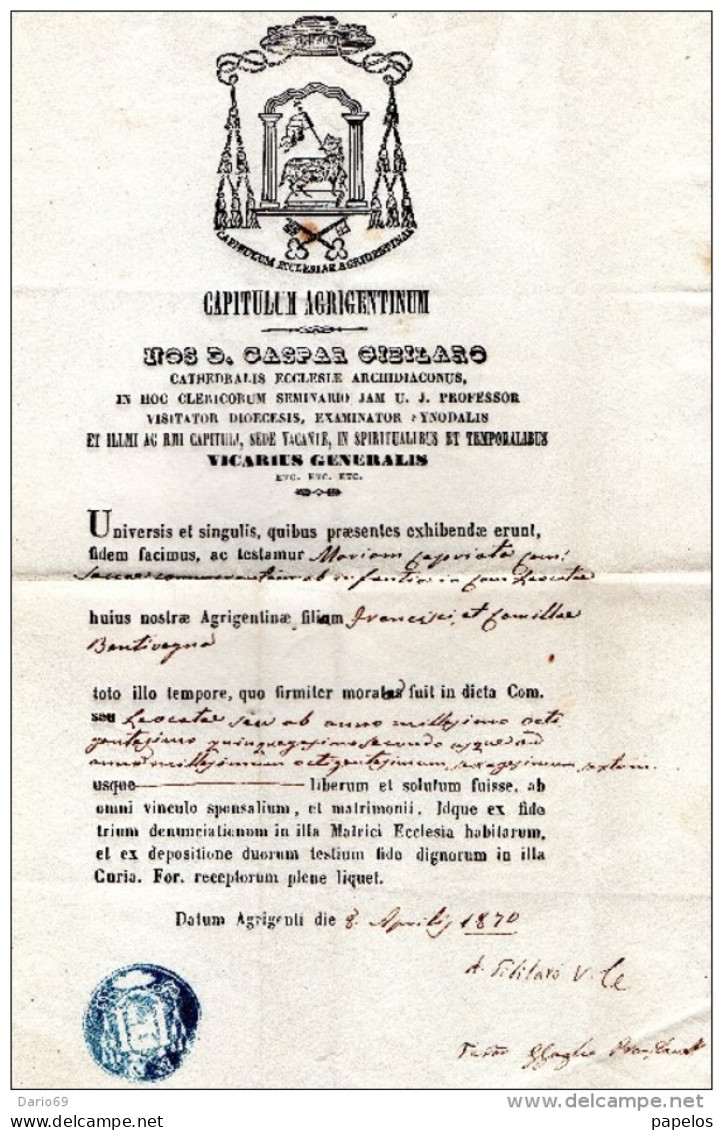 CAPITULUM ECCLESIAE AGRIGENTINAE
CAPITULUM AGRIGENTINUM
NOS D. CASPAR GIBILARO
CATHEDRALIS ECCLESIÆ ARCHIDIACONUS,
IN HOC CLERICORUM SEMINARIO JAM U. J. PROFESSOR
VISITATOR DIOECESIS, EXAMINATOR SYNODALIS
ET ILLMI AC RMI CAPITULI, SEDE VACANTE, IN SPIRITUALIBUS ET TEMPORALIBUS
VICARIUS GENERALIS
ETC. ETC. ETC.
Universis et singulis, quibus præsentes exhibendæ erunt,
fidem facimus, ac testamur Mariam
ab infantia in Com. Leocatae
huius nostræ Agrigentinæ filiam Francisci, et Camillae
Bentivegna
toto illo tempore, quo firmiter morata fuit in dicta Com.
seu Leocatae seu ab anno millesimo octi
gentesimo quinquagesimo secundo usque ad
annum millesimum octigentesimum sexagesimum
usque liberum et solutum fuisse, ab
omni vinculo sponsalium, et matrimonii. Idque ex fide
trium denunciationum in illa Matrici Ecclesia habitarum,
et ex depositione duorum testium fide dignorum in illa
Curia. For. receptorum plene liquet.
Datum Agrigenti die 8 Aprilis 1870
Gibilaro V.
Dario69
delcampe.net
papelos